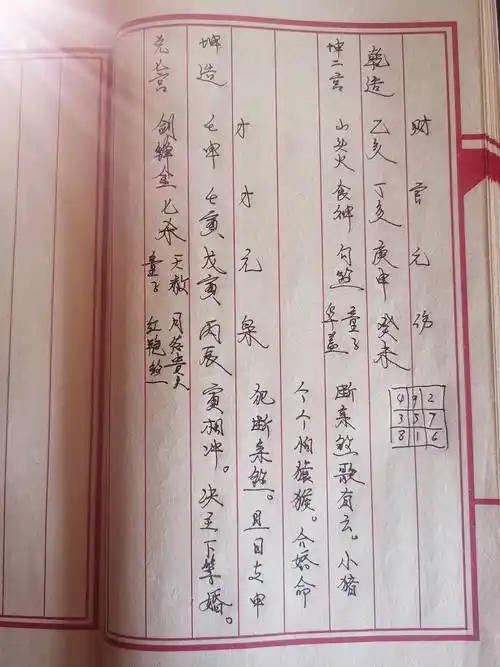 财 官 元 伤
乾造 乙亥 丁亥 庚申 癸未
4 9 2
3 5 7
8 1 6
坤二宫 山头火 食神 勾煞 童子 华盖
断亲煞歌有云。小猪
个个怕猿猴。合婚命
才 才 元 枭
犯断亲煞。且日支申
坤造 壬申 壬寅 戊寅 丙辰
寅相冲。决主下等婚。
兑七宫 剑锋金 七杀 天赦 月谷贵人
童子 红艳煞